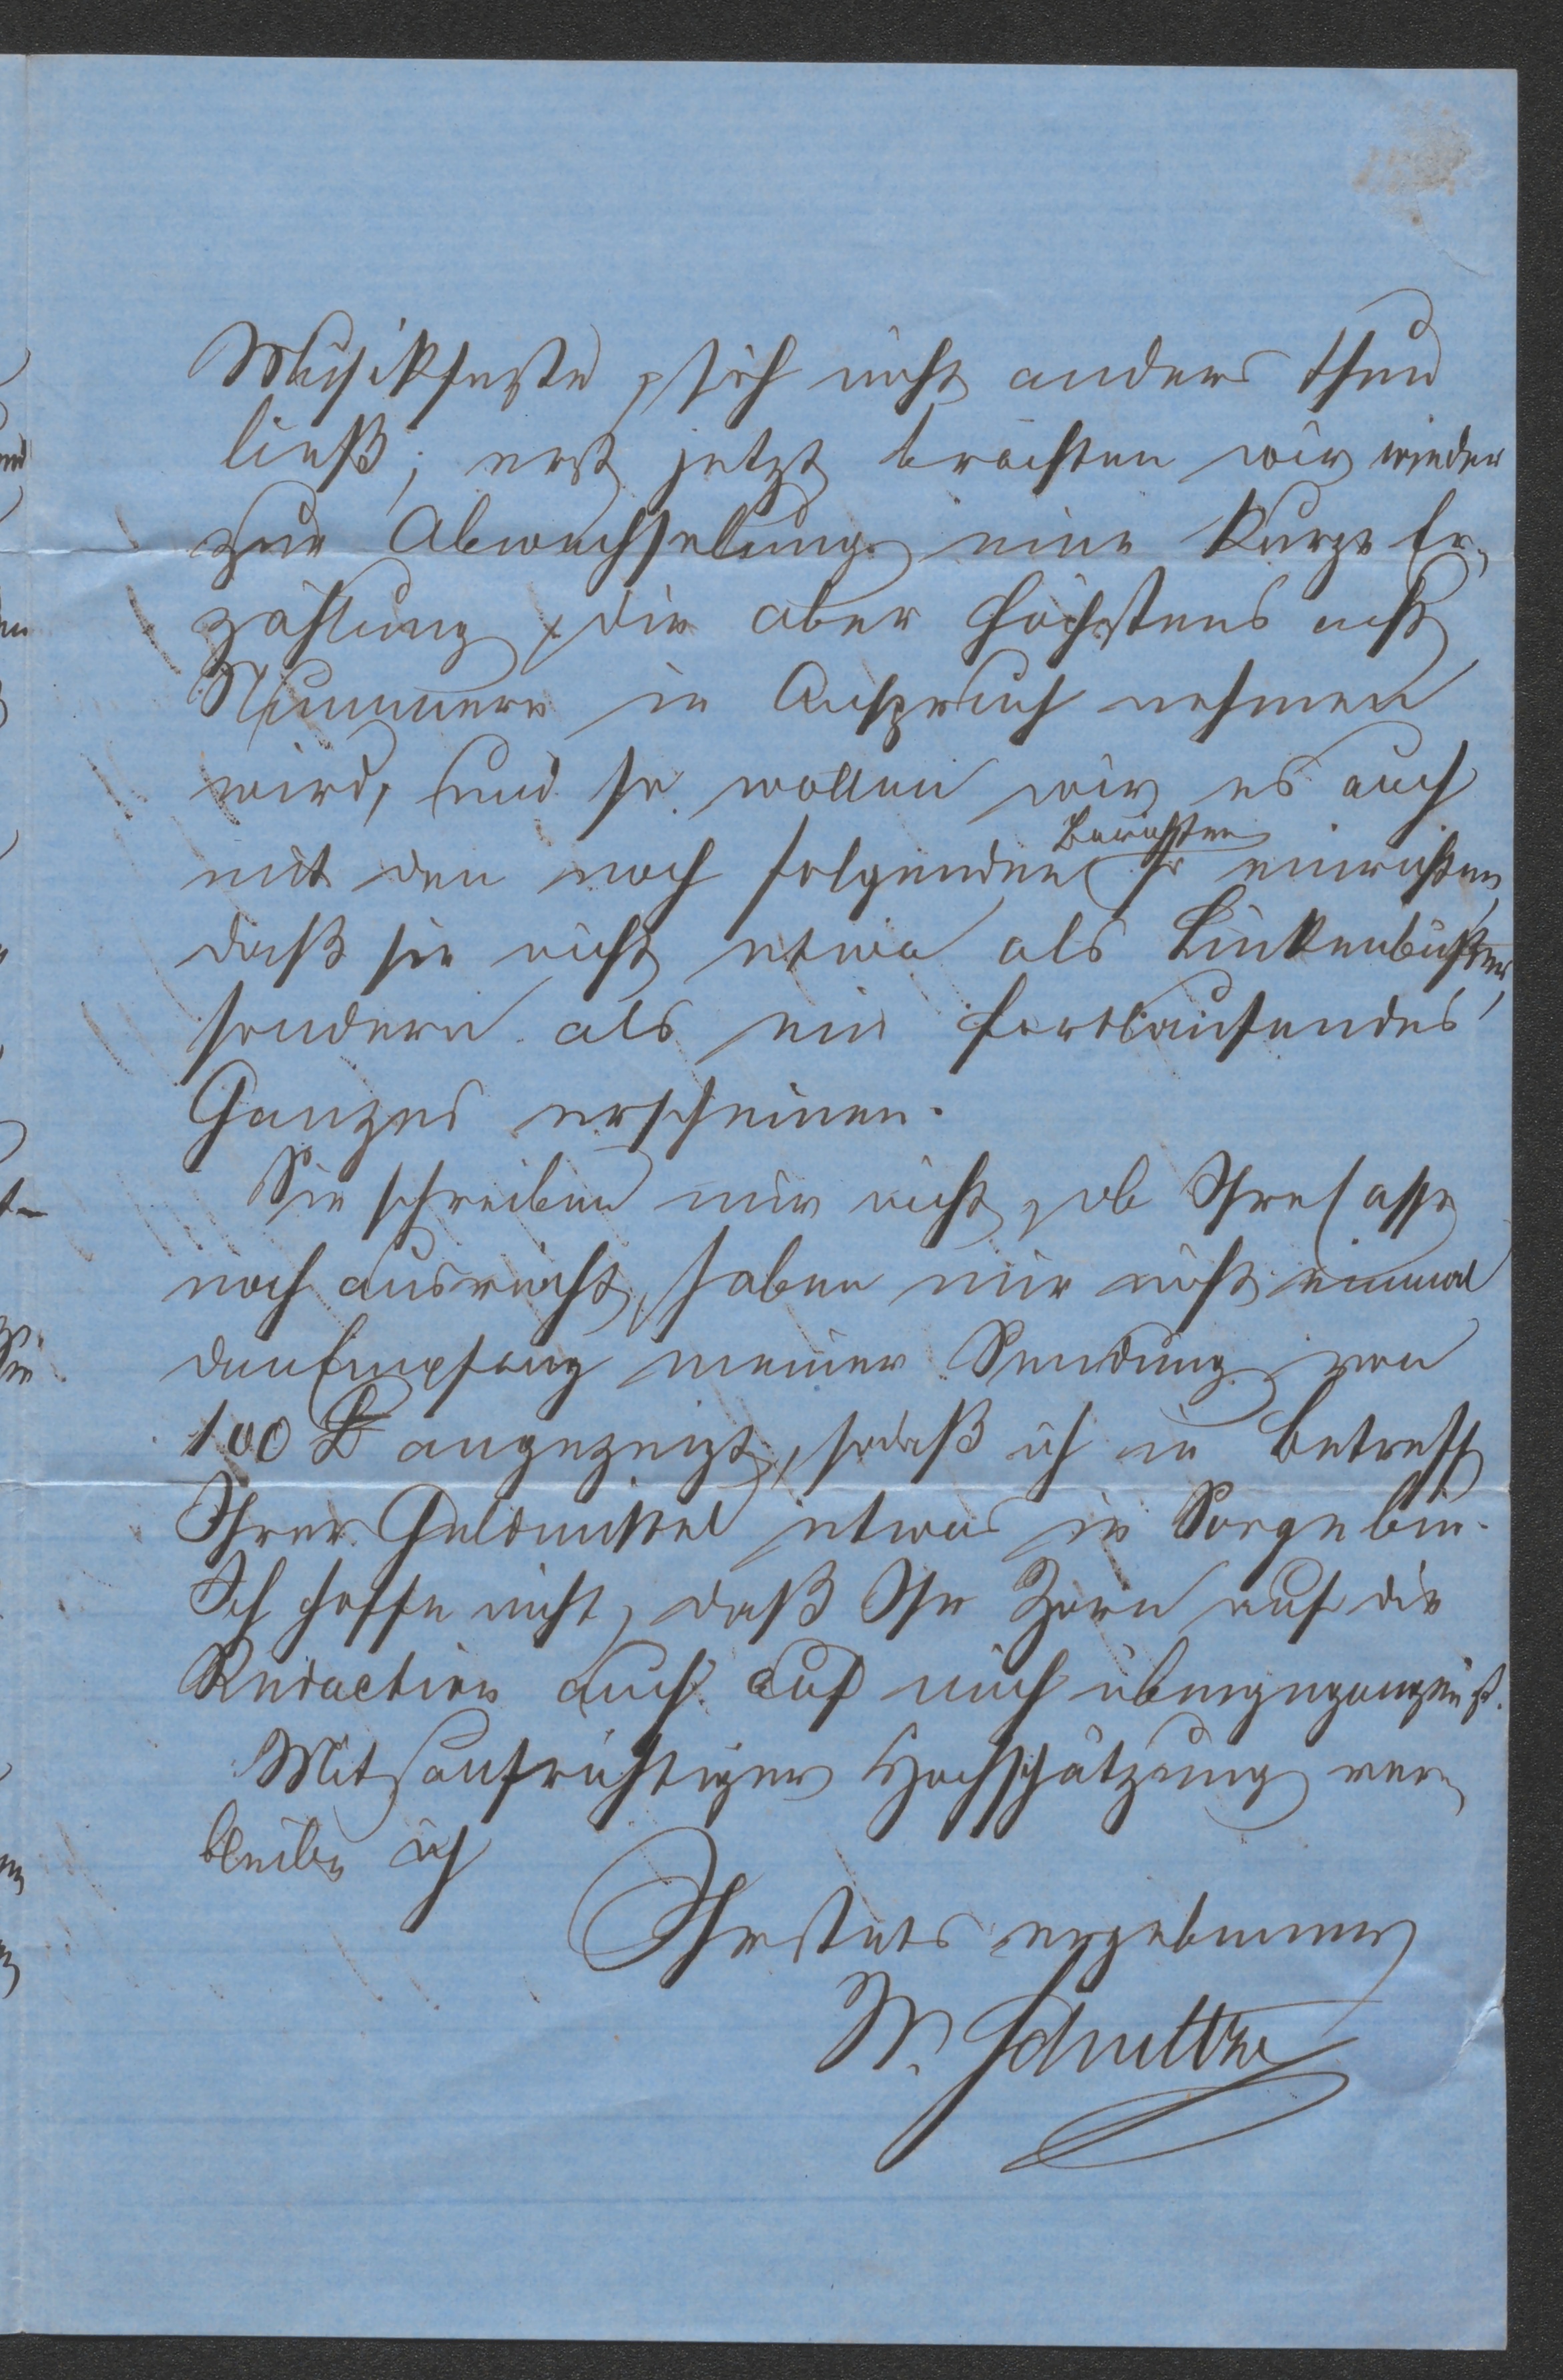 Musikfeste, sich nicht anders thun
ließ; erst jetzt brachten wir wieder
zur Abwechselung eine kurze Er-
zählung, die aber höchstens acht
Nummern in Anspruch nehmen
wird, und so wollen wir es auch
mit den noch folgenden Berichten so einrichten,
daß sie nicht etwa als Lückenbüßer,
sondern als ein fortlaufendes
Ganzes erscheinen.
Sie schreiben mir nicht, ob Ihre Casse
noch ausreicht, haben mir nicht einmal
den Empfang meiner Sendung von
100 angezeigt, sodaß ich in Betreff
Ihrer Geldmittel etwas in Sorge bin.
Ich hoffe nicht, daß Ihr Zorn auf die
Redaction auch auf mich übergegangen ist.
Mit aufrichtiger Hochschätzung ver-
bleibe ich
Ihr stets ergebener
W.